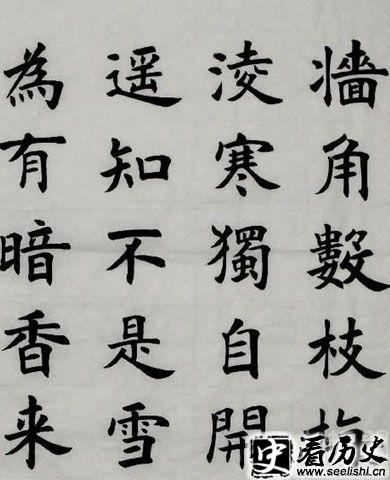 牆角數枝
淩寒獨自開
遥知不是雪
為有暗香来
史看历史
www.seelishi.com